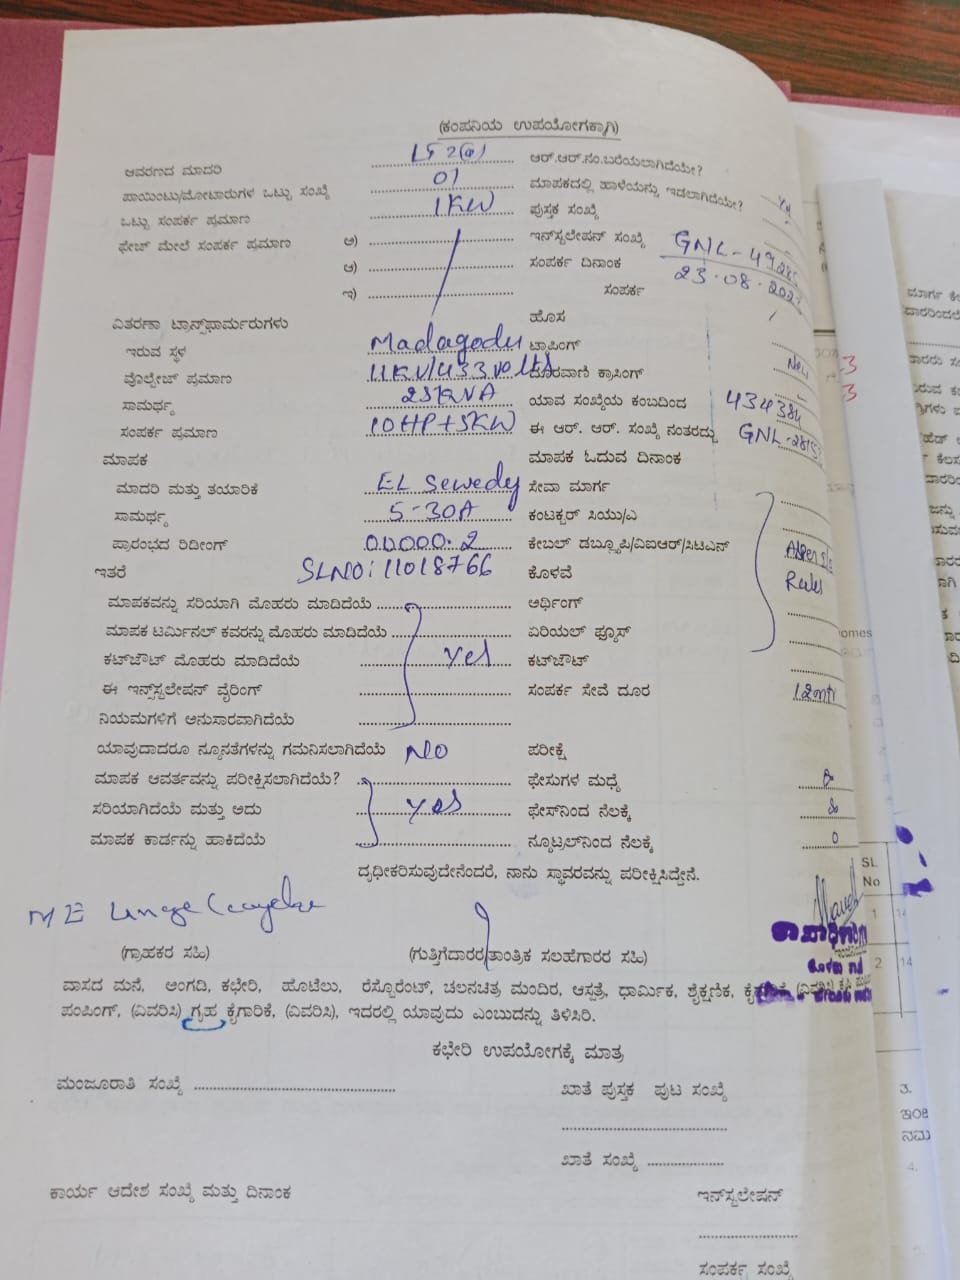 (ಕಂಪನಿಯ ಉಪಯೋಗಕ್ಕಾಗಿ)
ಆವರಣದ ಮಾದರಿ LT 2(a) ಆರ್.ಆರ್.ನಂ.ಬರೆಯಲಾಗಿದೆಯೇ?
ಪಾಯಿಂಟು/ಮೋಟಾರುಗಳ ಒಟ್ಟು ಸಂಖ್ಯೆ 01 ಮಾಪಕದಲ್ಲಿ ಹಾಳೆಯನ್ನು ಇಡಲಾಗಿದೆಯೇ?
ಒಟ್ಟು ಸಂಪರ್ಕ ಪ್ರಮಾಣ 1KW ಪುಸ್ತಕ ಸಂಖ್ಯೆ
ಫೇಜ್ ಮೇಲೆ ಸಂಪರ್ಕ ಪ್ರಮಾಣ ಅ) ಇನ್‌ಸ್ಟಲೇಷನ್ ಸಂಖ್ಯೆ GNL-4928
ಆ) ಸಂಪರ್ಕ ದಿನಾಂಕ 23.08.202
ಇ) ಸಂಪರ್ಕ
ವಿತರಣಾ ಟ್ರಾನ್ಸ್‌ಫಾರ್ಮರುಗಳು ಹೊಸ
ಇರುವ ಸ್ಥಳ Madagodu ಟ್ರಾಪಿಂಗ್
ವೊಲ್ಟೇಜ್ ಪ್ರಮಾಣ 11KV/433volts ದೂರವಾಣಿ ಕ್ರಾಸಿಂಗ್ New
ಸಾಮರ್ಥ್ಯ 25KVA ಯಾವ ಸಂಖ್ಯೆಯ ಕಂಬದಿಂದ 434384
ಸಂಪರ್ಕ ಪ್ರಮಾಣ 10HP+5KW ಈ ಆರ್. ಆರ್. ಸಂಖ್ಯೆ ನಂತರದ್ದು GNL-2815
ಮಾಪಕ ಮಾಪಕ ಓದುವ ದಿನಾಂಕ
ಮಾದರಿ ಮತ್ತು ತಯಾರಿಕೆ EL Sewedy ಸೇವಾ ಮಾರ್ಗ
ಸಾಮರ್ಥ್ಯ 5-30A ಕಂಟಕ್ಟರ್ ಸಿಯು/ಎ
ಪ್ರಾರಂಭದ ರಿಡೀಂಗ್ 00000.2 ಕೇಬಲ್ ಡಬ್ಲ್ಯೂಪಿ/ವಿಐಆರ್/ಸಿಟಿಎನ್ As per
ಇತರೆ SLNO:11018766 ಕೊಳವೆ Rules
ಮಾಪಕವನ್ನು ಸರಿಯಾಗಿ ಮೊಹರು ಮಾಡಿದೆಯೆ ಅರ್ಥಿಂಗ್
ಮಾಪಕ ಟರ್ಮಿನಲ್ ಕವರನ್ನು ಮೊಹರು ಮಾಡಿದೆಯೆ ಏರಿಯಲ್ ಫ್ಯೂಸ್
ಕಟ್‌ಔಟ್ ಮೊಹರು ಮಾಡಿದೆಯೆ Yes ಕಟ್‌ಔಟ್
ಈ ಇನ್ಸ್‌ಸ್ಟಲೇಷನ್ ವೈರಿಂಗ್ ಸಂಪರ್ಕ ಸೇವೆ ದೂರ 12mtr
ನಿಯಮಗಳಿಗೆ ಅನುಸಾರವಾಗಿದೆಯೆ
ಯಾವುದಾದರೂ ನ್ಯೂನತೆಗಳನ್ನು ಗಮನಿಸಲಾಗಿದೆಯೆ NO ಪರೀಕ್ಷೆ
ಮಾಪಕ ಆವರ್ತವನ್ನು ಪರೀಕ್ಷಿಸಲಾಗಿದೆಯೆ? ಫೇಸುಗಳ ಮಧ್ಯೆ
ಸರಿಯಾಗಿದೆಯೆ ಮತ್ತು ಅದು Yes ಫೇಸ್‌ನಿಂದ ನೆಲಕ್ಕೆ
ಮಾಪಕ ಕಾರ್ಡನ್ನು ಹಾಕಿದೆಯೆ ನ್ಯೂಟ್ರಲ್‌ನಿಂದ ನೆಲಕ್ಕೆ 0
ದೃಢೀಕರಿಸುವುದೇನೆಂದರೆ, ನಾನು ಸ್ಥಾವರವನ್ನು ಪರೀಕ್ಷಿಸಿದ್ದೇನೆ.
(ಗ್ರಾಹಕರ ಸಹಿ) (ಗುತ್ತಿಗೆದಾರರ/ತಾಂತ್ರಿಕ ಸಲಹೆಗಾರರ ಸಹಿ)
ವಾಸದ ಮನೆ, ಅಂಗಡಿ, ಕಛೇರಿ, ಹೊಟೆಲು, ರೆಸ್ಟೊರೆಂಟ್, ಚಲನಚಿತ್ರ ಮಂದಿರ, ಆಸ್ಪತ್ರೆ, ಧಾರ್ಮಿಕ, ಶೈಕ್ಷಣಿಕ, (ವಿವರಿಸಿ)
ಪಂಪಿಂಗ್, (ವಿವರಿಸಿ) ಗೃಹ ಕೈಗಾರಿಕೆ, (ವಿವರಿಸಿ), ಇದರಲ್ಲಿ ಯಾವುದು ಎಂಬುದನ್ನು ತಿಳಿಸಿರಿ.
ಕಛೇರಿ ಉಪಯೋಗಕ್ಕೆ ಮಾತ್ರ
ಮಂಜೂರಾತಿ ಸಂಖ್ಯೆ ಖಾತೆ ಪುಸ್ತಕ ಪುಟ ಸಂಖ್ಯೆ
ಖಾತೆ ಸಂಖ್ಯೆ
ಕಾರ್ಯ ಆದೇಶ ಸಂಖ್ಯೆ ಮತ್ತು ದಿನಾಂಕ ಇನ್‌ಸ್ಟಲೇಷನ್
ಸಂಪರ್ಕ ಸಂಖ್ಯೆ
SL
No
1
2
14